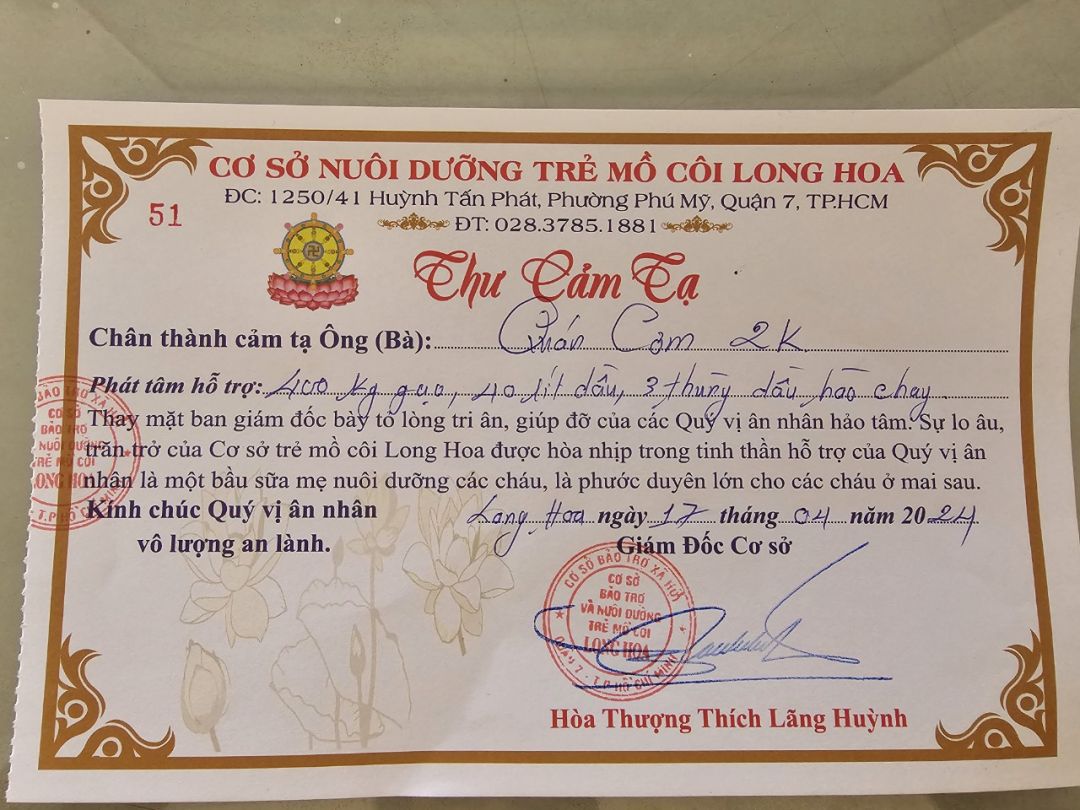 CƠ SỞ NUÔI DƯỠNG TRẺ MỒ CÔI LONG HOA
ĐC: 1250/41 Huỳnh Tấn Phát, Phường Phú Mỹ, Quận 7, TP.HCM
51
ĐT: 028.3785.1881
Thư Cảm Tạ
Chân thành cảm tạ Ông (Bà): Quán Cơm 2K
Phát tâm hỗ trợ: 400 kg gạo, 40 lít dầu, 3 thùng dầu hào chay
Thay mặt ban giám đốc bày tỏ lòng tri ân, giúp đỡ của các Quý vị ân nhân hảo tâm. Sự lo âu,
trăn trở của Cơ sở trẻ mồ côi Long Hoa được hòa nhịp trong tinh thần hỗ trợ của Quý vị ân
nhân là một bầu sữa mẹ nuôi dưỡng các cháu, là phước duyên lớn cho các cháu ở mai sau.
Kính chúc Quý vị ân nhân
vô lượng an lành.
Long Hoa ngày 17 tháng 04 năm 2024
Giám Đốc Cơ sở
CƠ SỞ BẢO TRỢ XÃ HỘI
CƠ SỞ
BẢO TRỢ
VÀ NUÔI DƯỠNG
TRẺ MỒ CÔI
LONG HOA
QUẬN 7 - T.P HỒ CHÍ MINH
BẢO TRỢ XÃ
CƠ SỞ
BẢO TRỢ
NUÔI DƯỠNG
TRẺ MỒ CÔI
LONG HOA
- T.P HỒ CHÍ MINH
Hòa Thượng Thích Lãng Huỳnh